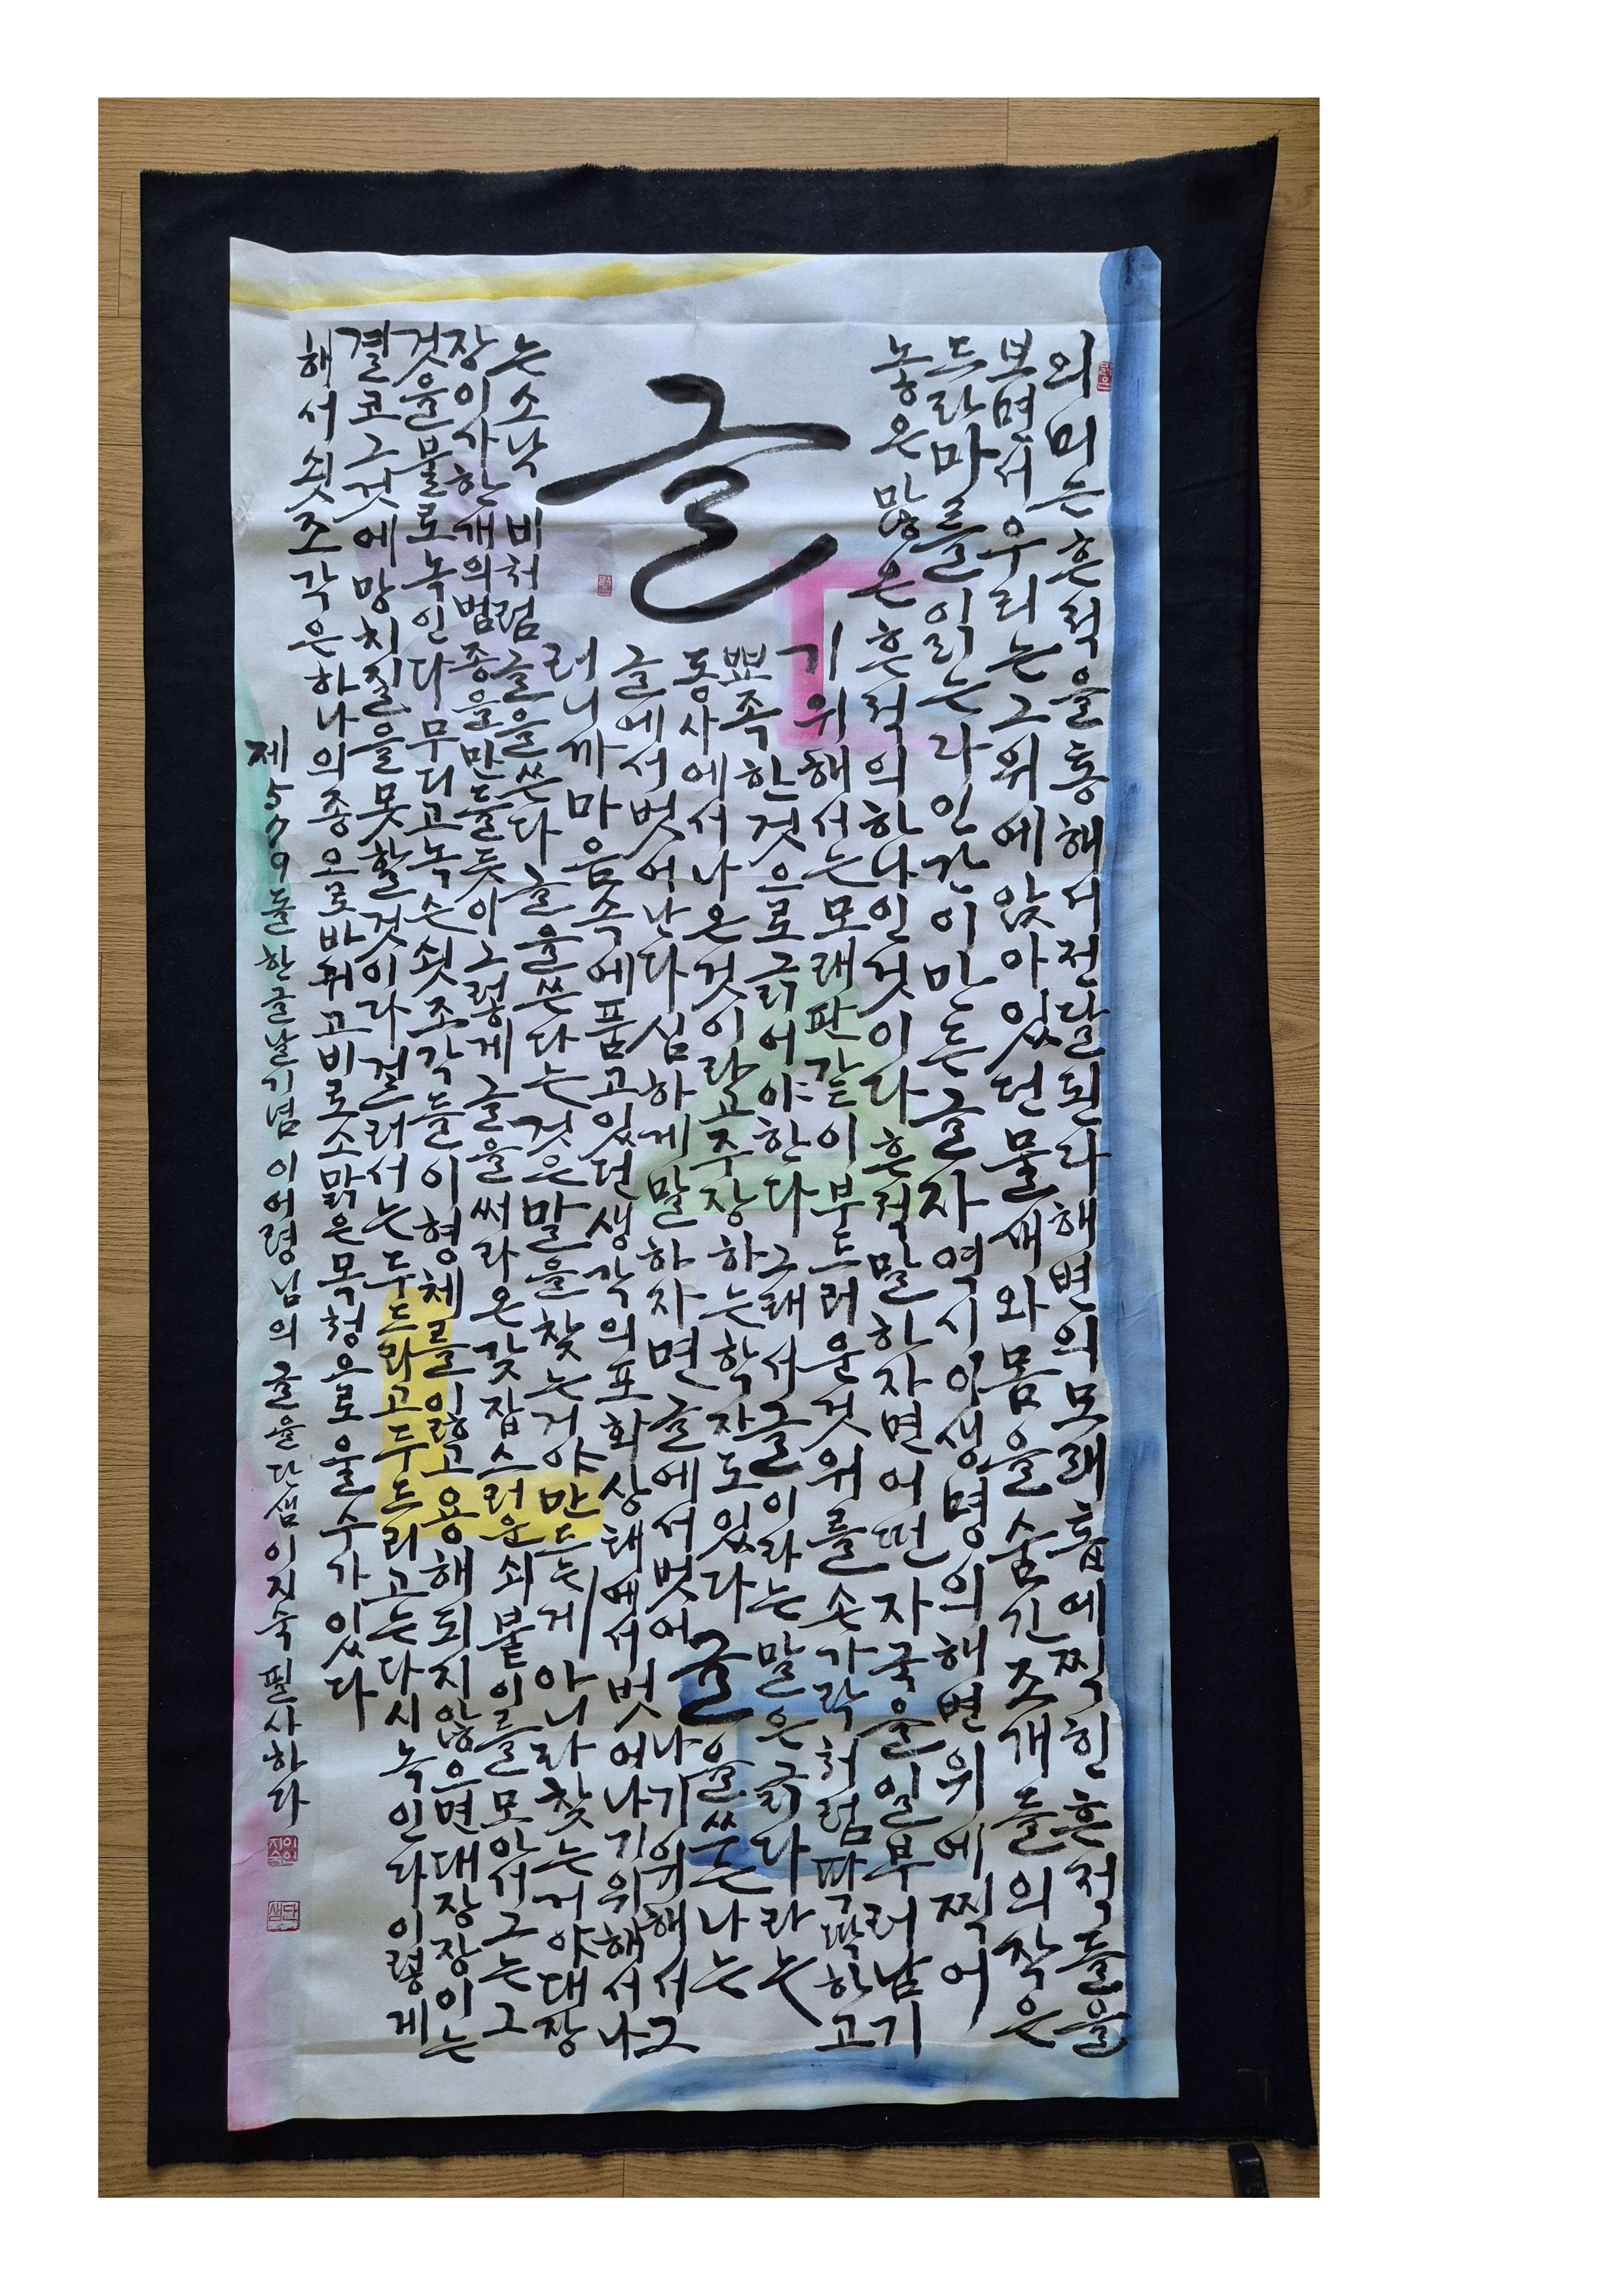 글
의미는 흔적을 통해서 전달된다 해변의 모래톱에 찍힌 흔적들을
보면서 우리는 그 위에 앉아 있던 물새와 몸을 숨긴 조개들의 작은
드라마를 읽는다 인간이 만든 글자 역시 이 생명의 해변 위에 찍어
놓은 많은 흔적의 하나인 것이다 흔적 말하자면 어떤 자국을 일부러 남기
기 위해서는 모래판 같이 부드러운 것 위를 손가락처럼 딱딱하고
뾰족한 것으로 긁어야 한다 그래서 글이라는 말은 긁다라는
동사에서 나온 것이라고 주장하는 학자도 있다 글을 쓰는 나는
글에서 벗어난다 심하게 말하자면 글에서 벗어나기 위해서 그
러니까 마음속에 품고 있던 생각의 포화상태에서 벗어나기 위해서 나
는 소낙비처럼 글을 쓴다 글을 쓴다는 것은 말을 찾는 거야 만드는 게 아니라 찾는 거야 대장
장이가 한 개의 범종을 만들듯이 그렇게 글을 써라 온갖 잡스러운 쇠붙이를 모아서 그는 그
것을 불로 녹인다 무디고 녹슨 쇳조각들이 형체를 잃고 용해되지 않으면 대장장이는
결코 그것에 망치질을 못할 것이라 걸러서는 두드라고 두드리고는 다시 녹인다 이렇게
해서 쇳조각은 하나의 종으로 바뀌고 비로소 맑은 목청으로 울 수가 있다
제579돌 한글날 기념 이어령님의 글을 단샘 이지숙 필사하다
이지숙인
단샘